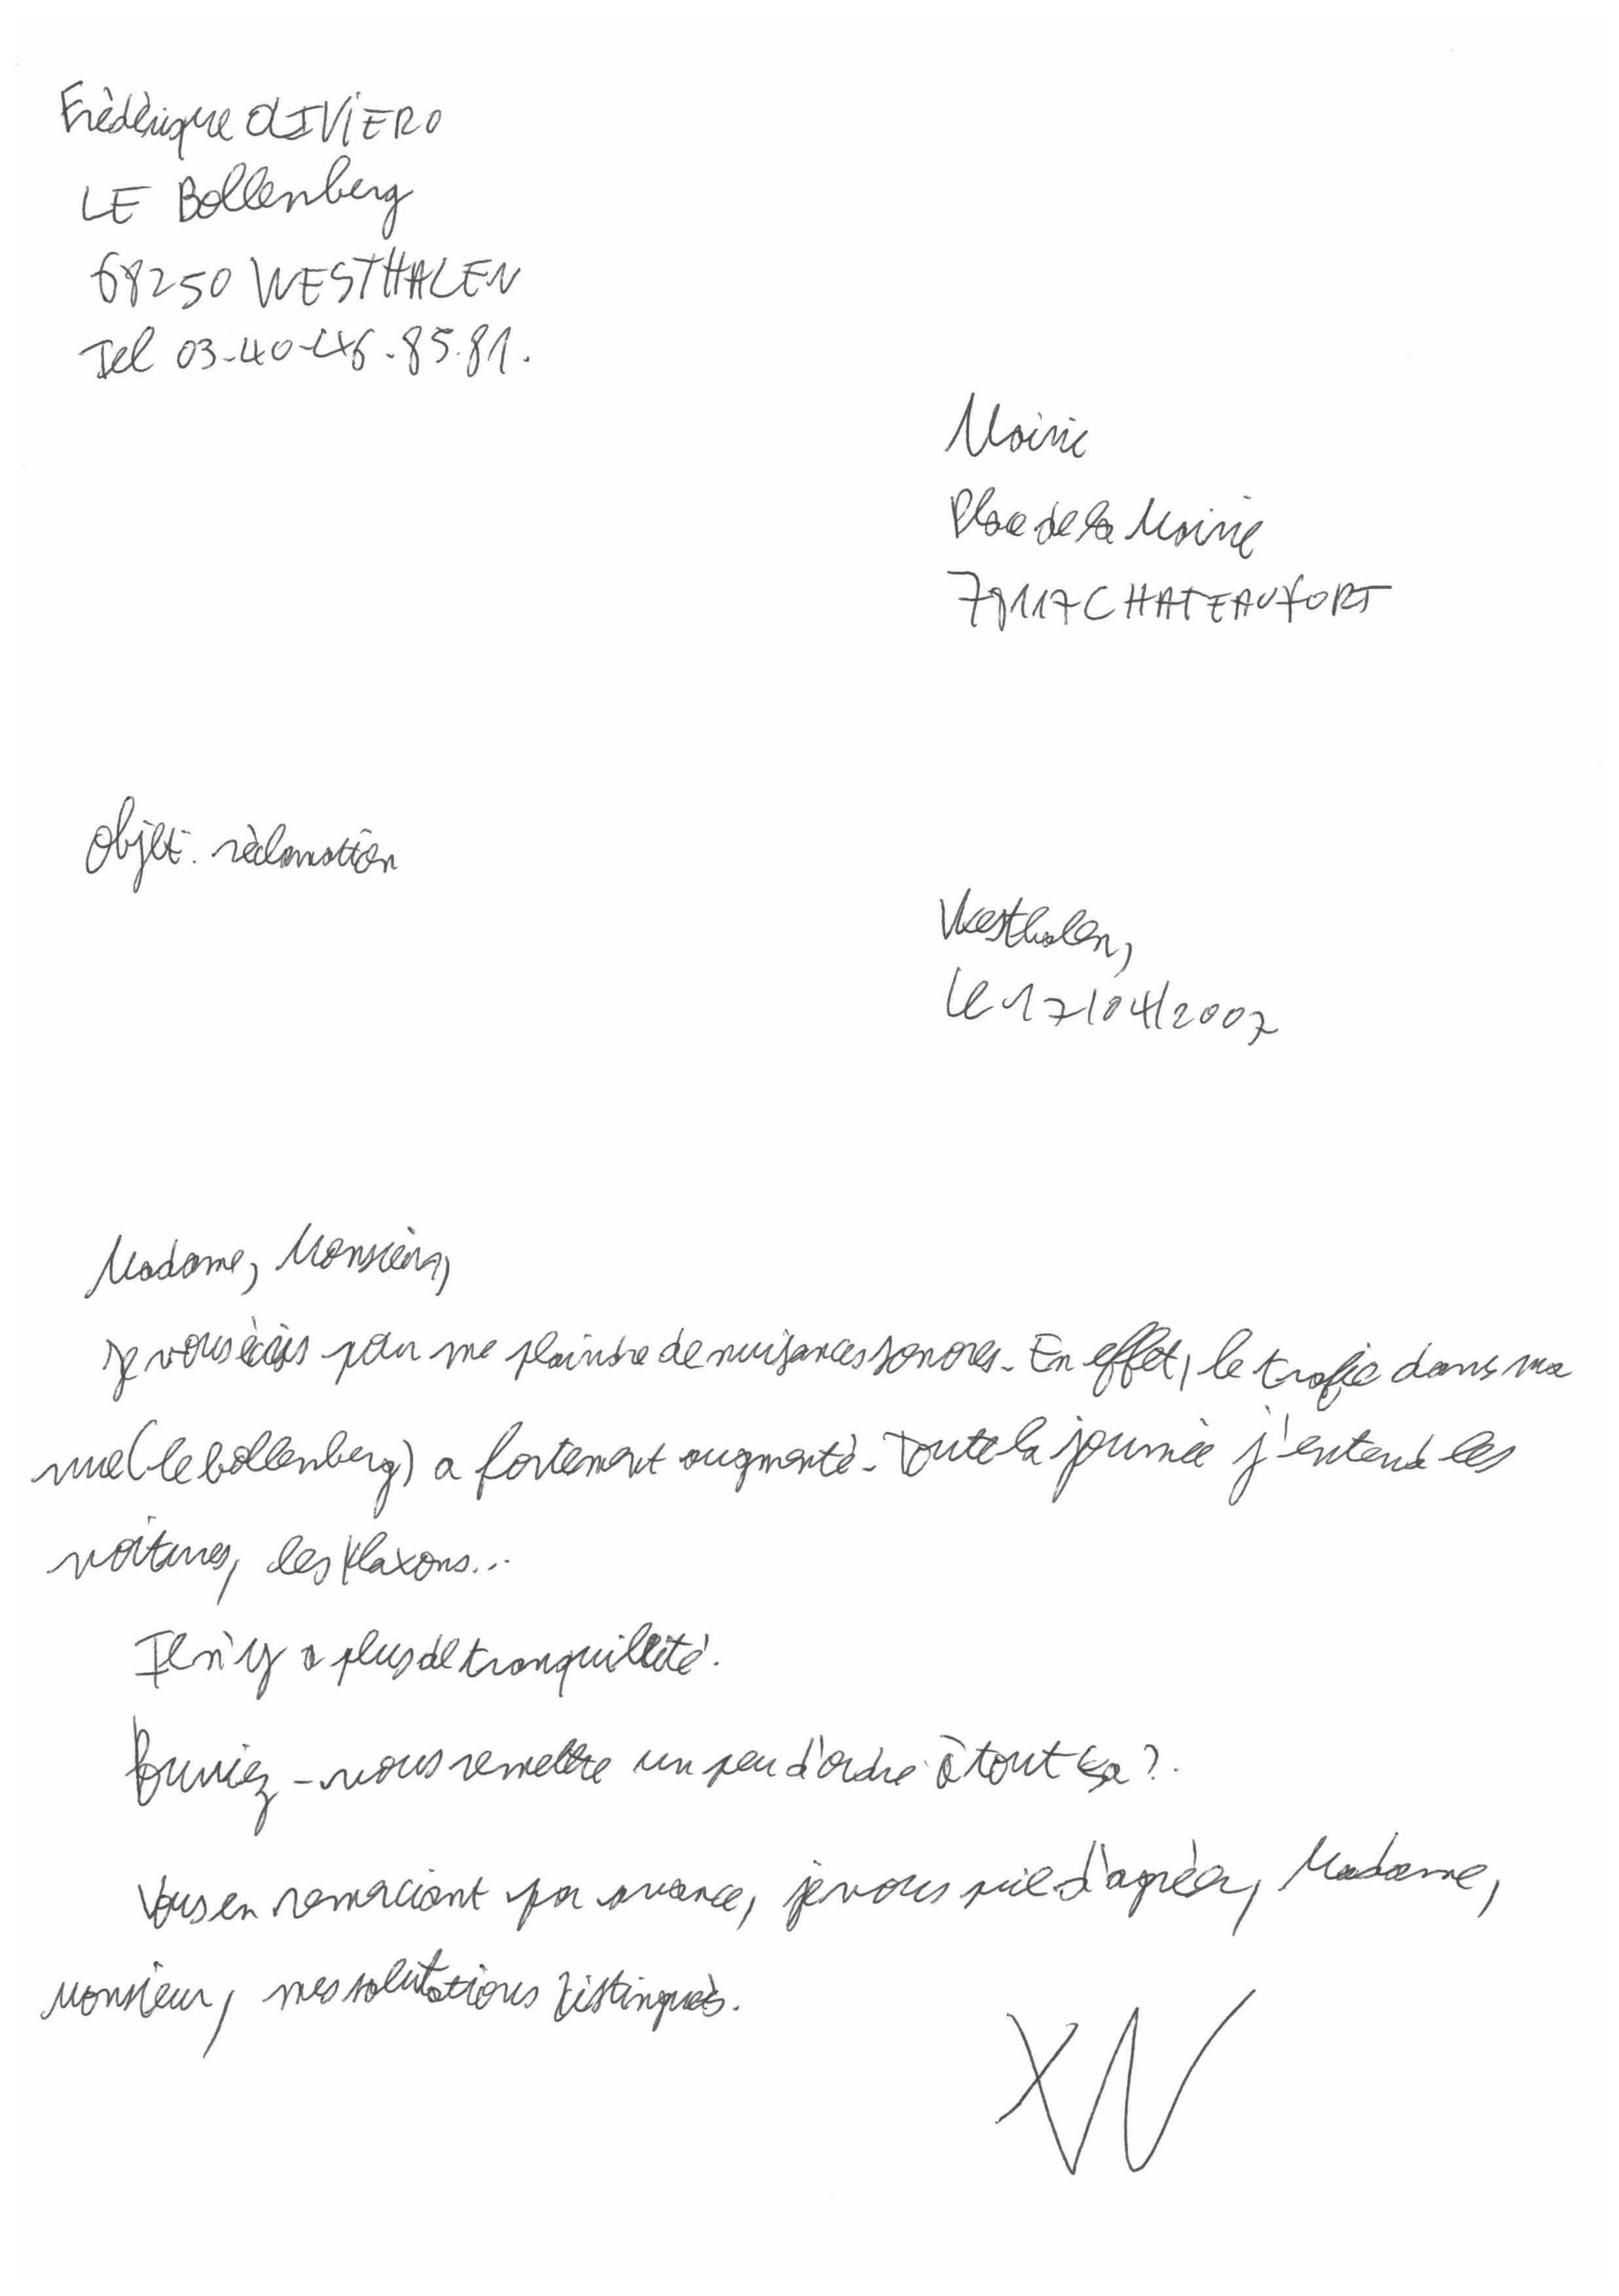 Frédérique OLIVIERO
LE Bollenberg
68250 WESTHALEN
Tel 03-40-46.85.81.
Mairie
Place de la Mairie
78117 CHATEAUFORT
Objet: réclamation
Westhalen,
Le 17/04/2007
Madame, Monsieur,
Je vous écris pour me plaindre de nuisances sonores. En effet, le trafic dans ma
rue (le bollenberg) a fortement augmenté. Toute la journée j'entend les
voitures, les klaxons...
Il n'y a plus de tranquillité.
Pourriez-vous remettre un peu d'ordre à tout ça ?.
Vous en remerciant par avance, je vous prie d'agréer, Madame,
Monsieur, mes salutations distingués.